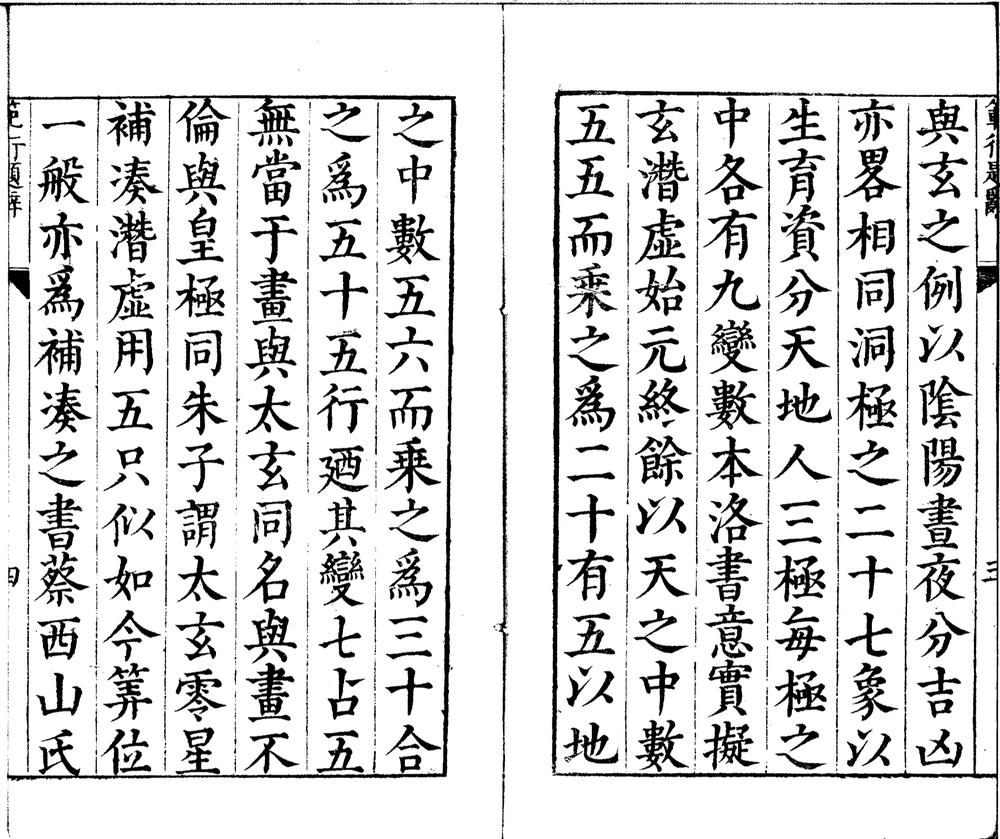 與玄之例以陰陽晝夜分吉凶
亦畧相同洞極之二十七象以
生育資分天地人三極每極之
中各有九變數本洛書意實擬
玄潛虛始元終餘以天之中數
五五而乘之為二十有五以地
之中數五六而乘之為三十合
之為五十五行廼其變七占五
無當于畫與太玄同名與畫不
倫與皇極同朱子謂太玄零星
補湊潛虛用五只似如今筭位
一般亦為補湊之書蔡西山氏